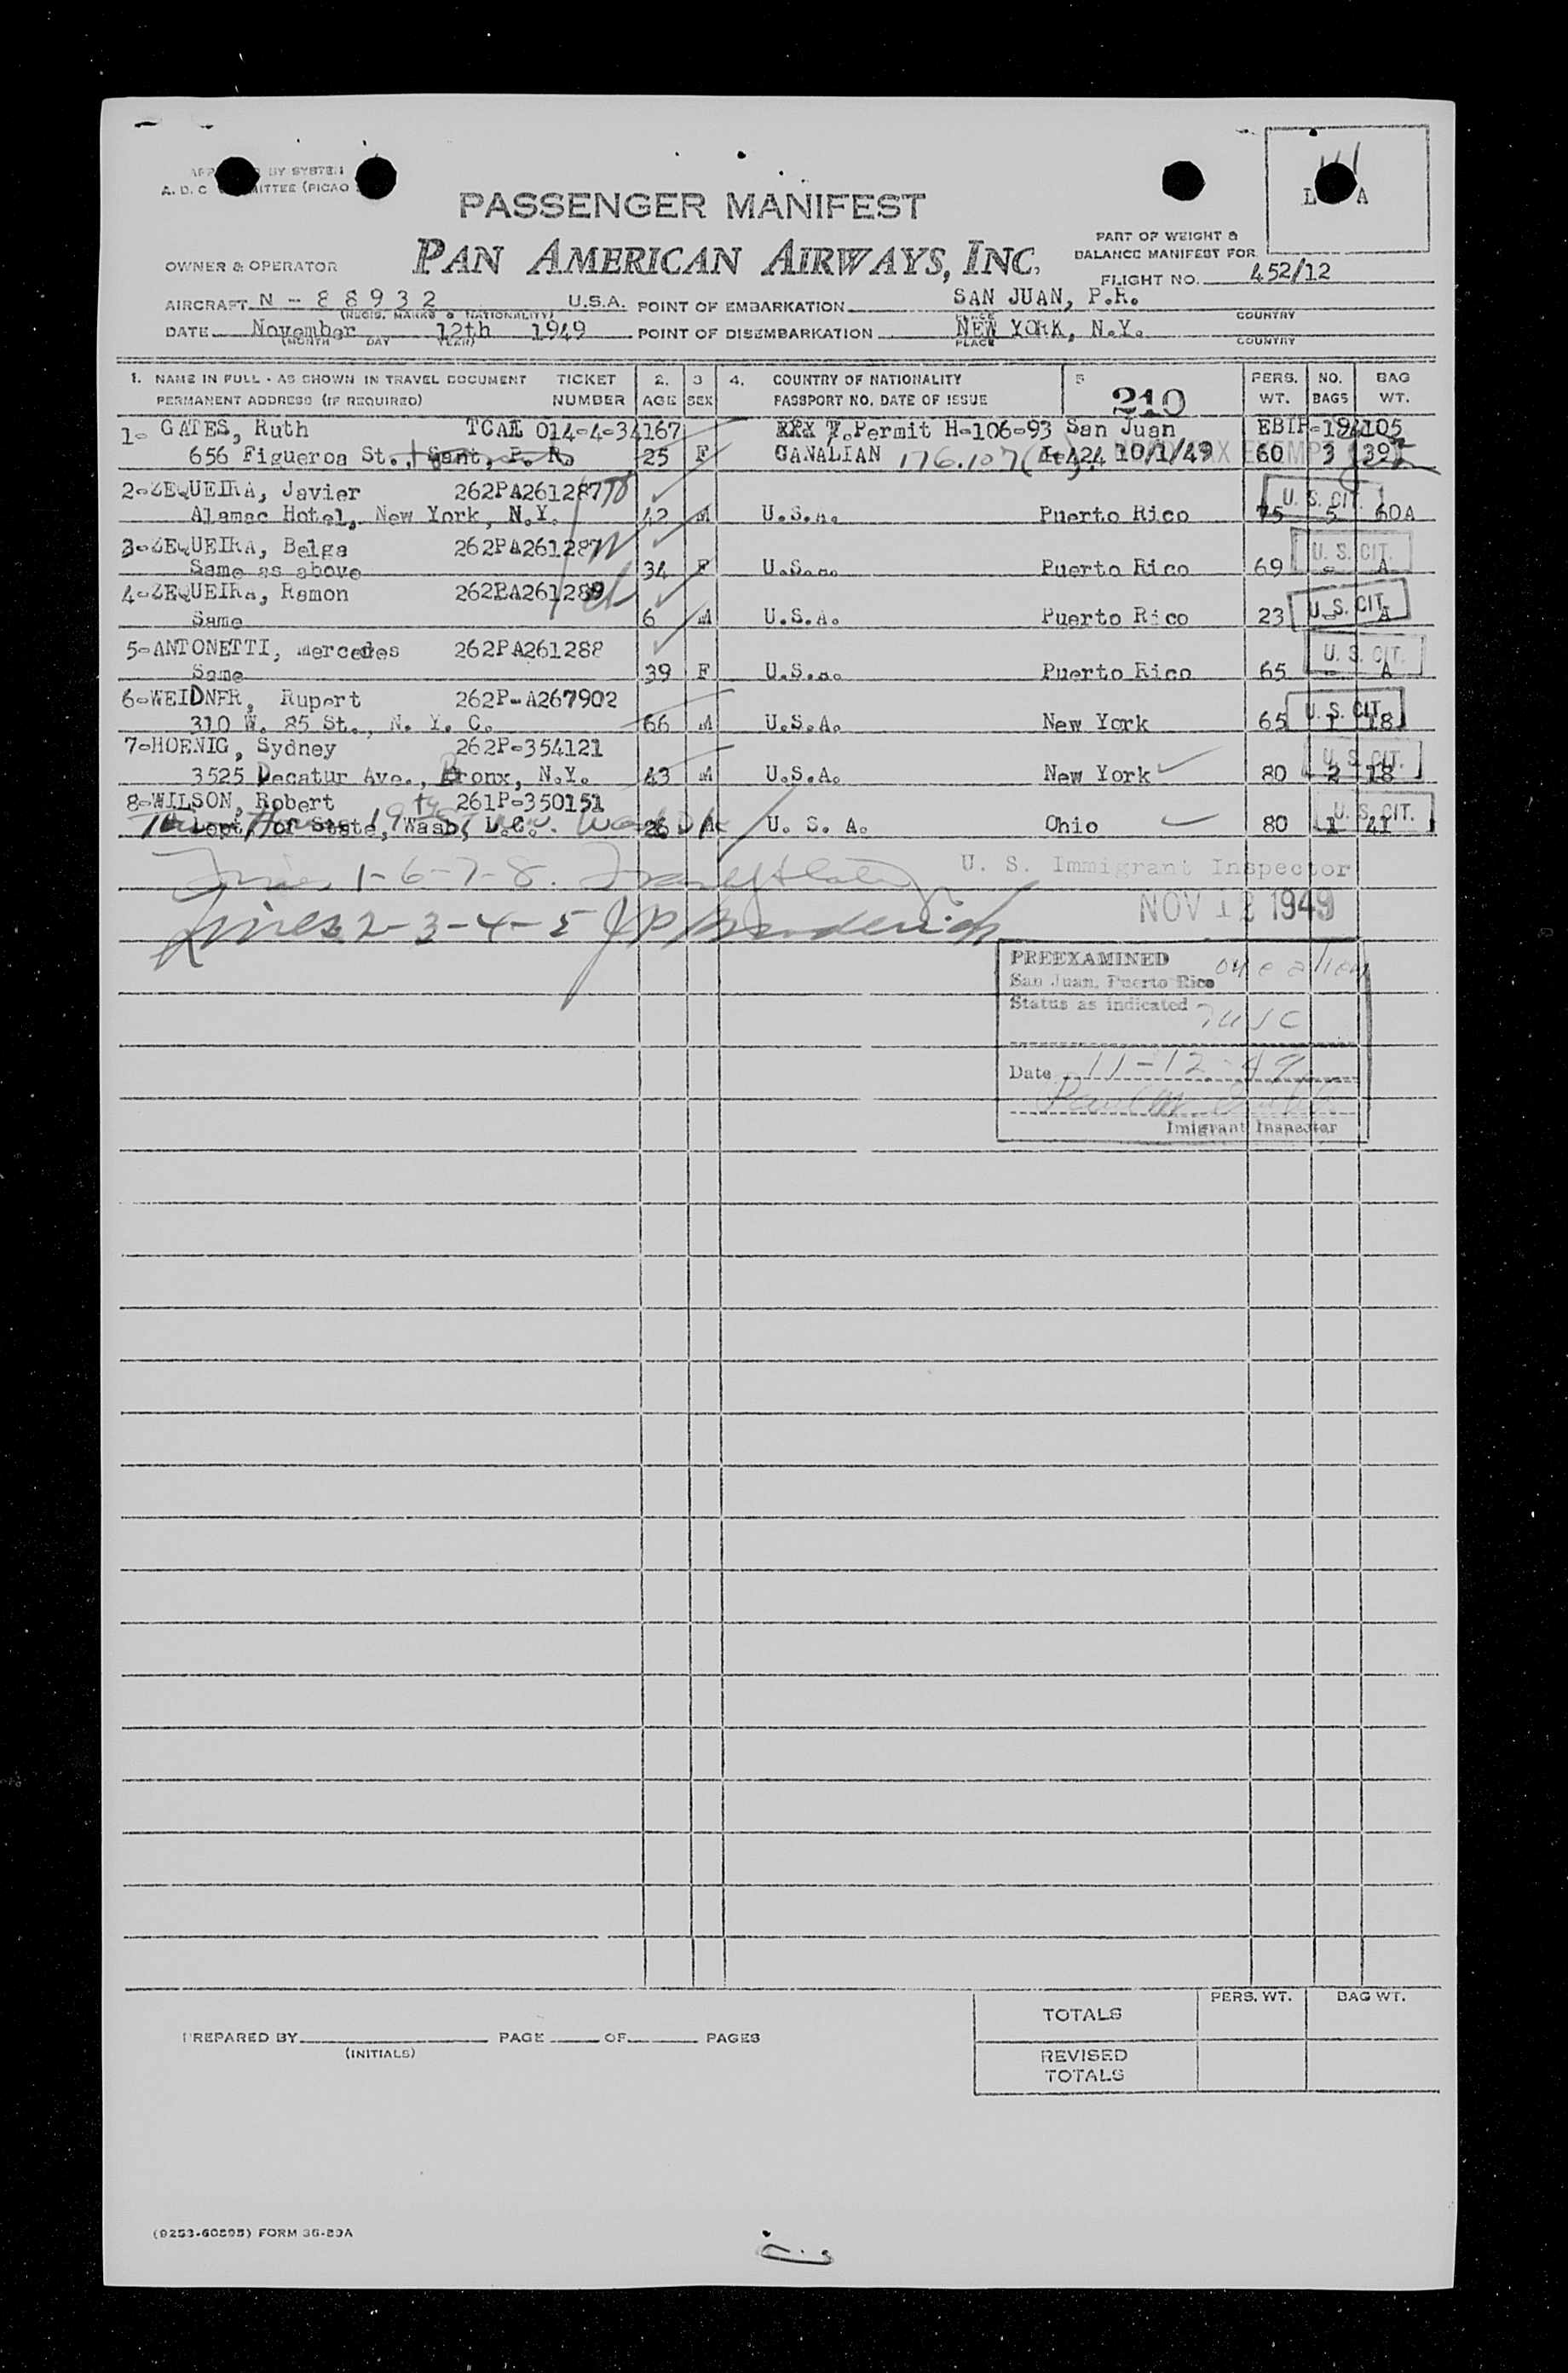 BY SYSTEM
A. D. C ITTEE (PICAO
PASSENGER MANIFEST
L A
PART OF WEIGHT &
OWNER & OPERATOR PAN AMERICAN AIRWAYS, INC. BALANCE MANIFEST FOR
FLIGHT NO. 452/12
AIRCRAFT N - 88932 U.S.A. POINT OF EMBARKATION SAN JUAN, P.R.
(REGIS. MARKS & NATIONALITY) PLACE COUNTRY
DATE November 12th 1949 POINT OF DISEMBARKATION NEW YORK, N.Y.
(MONTH DAY YEAR) PLACE COUNTRY
1. NAME IN FULL - AS SHOWN IN TRAVEL DOCUMENT TICKET 2. 3 4. COUNTRY OF NATIONALITY 5 PERS. NO. BAG
PERMANENT ADDRESS (IF REQUIRED) NUMBER AGE SEX PASSPORT NO. DATE OF ISSUE 210 WT. BAGS WT.
1- GATES, Ruth TCAI 014-4-34167 T.Permit H-106-93 San Juan EBIP-194105
656 Figueroa St., Sant, P. R. 25 F CANADIAN 176.107 424 10/1/49 60 3 39
2-ZEQUEIRA, Javier 262PA261287 U. S. CIT.
Alamac Hotel, New York, N.Y. 42 M U.S.A. Puerto Rico 75 5 60A
3-ZEQUEIRA, Belga 262PA261287 U. S. CIT.
Same as above 34 F U.S.A. Puerto Rico 69 - A
4-ZEQUEIRA, Ramon 262PA261289 U. S. CIT.
Same 6 M U.S.A. Puerto Rico 23 - A
5-ANTONETTI, Mercedes 262PA261288 U. S. CIT.
Same 39 F U.S.A. Puerto Rico 65 - A
6-WEIDNER, Rupert 262P-A267902 U. S. CIT.
310 W. 85 St., N. Y. C. 66 M U.S.A. New York 65 1 18
7-HOENIG, Sydney 262P-354121 U. S. CIT.
3525 Decatur Ave., Bronx, N.Y. 43 M U.S.A. New York 80 2 18
8-WILSON, Robert 261P-350151 U. S. CIT.
Dept. of State, Wash, D.C. 26 U. S. A. Ohio 80 1 41
1-6-7-8. U. S. Immigrant Inspector
Lines 2-3-4-5 NOV 12 1949
PREEXAMINED one alien
San Juan, Puerto Rico
Status as indicated 7 USC
Date 11-12-49
Imigrant Inspector
TOTALS PERS. WT. BAG WT.
PREPARED BY PAGE OF PAGES
(INITIALS)
REVISED
TOTALS
(9253-60595) FORM 36-89A